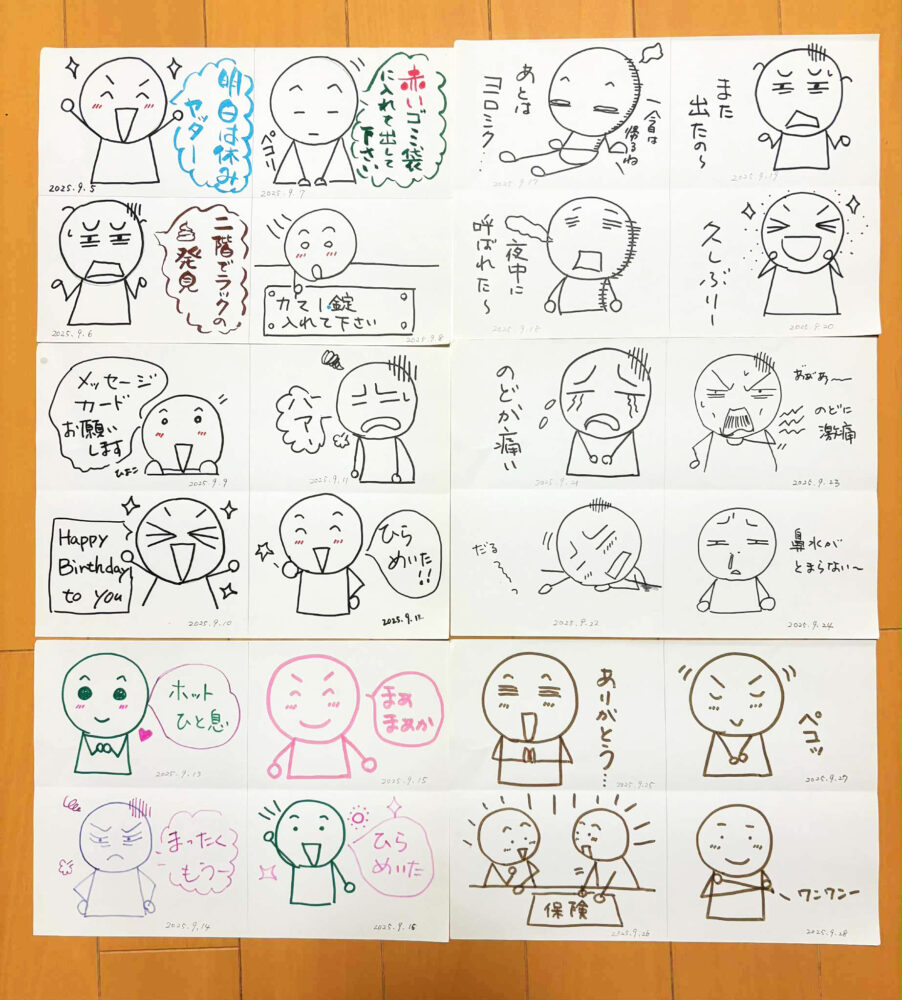 明日は休み
ヤッター
2025.9.5
赤いゴミ袋
に入れて出して
下さい
ペコリ
2025.9.7
二階でラックの
発見
2025.9.6
カマ1錠
入れて下さい
2025.9.8
あとは
ヨロシク…
今日は
帰るね
2025.9.17
また
出たの〜
2025.9.19
夜中に
呼ばれた〜
2025.9.18
久しぶりー
2025.9.20
メッセージ
カード
お願い
します
ひょこ
2025.9.9
ハー
アー
2025.9.11
Happy
Birthday
to you
2025.9.10
ひら
めいた!!
2025.9.12
のどが痛い
2025.9.21
あ゛あ゛あ〜
のどに
激痛
2025.9.23
だる〜
2025.9.22
鼻水が
とまらない〜
2025.9.24
ホット
ひと息
2025.9.13
まぁ
まぁか
2025.9.15
まったく
もうー
2025.9.14
ひら
めいた
2025.9.16
ありがとう…
2025.9.25
ペコッ
2025.9.27
保険
2025.9.26
ワンワンー
2025.9.28